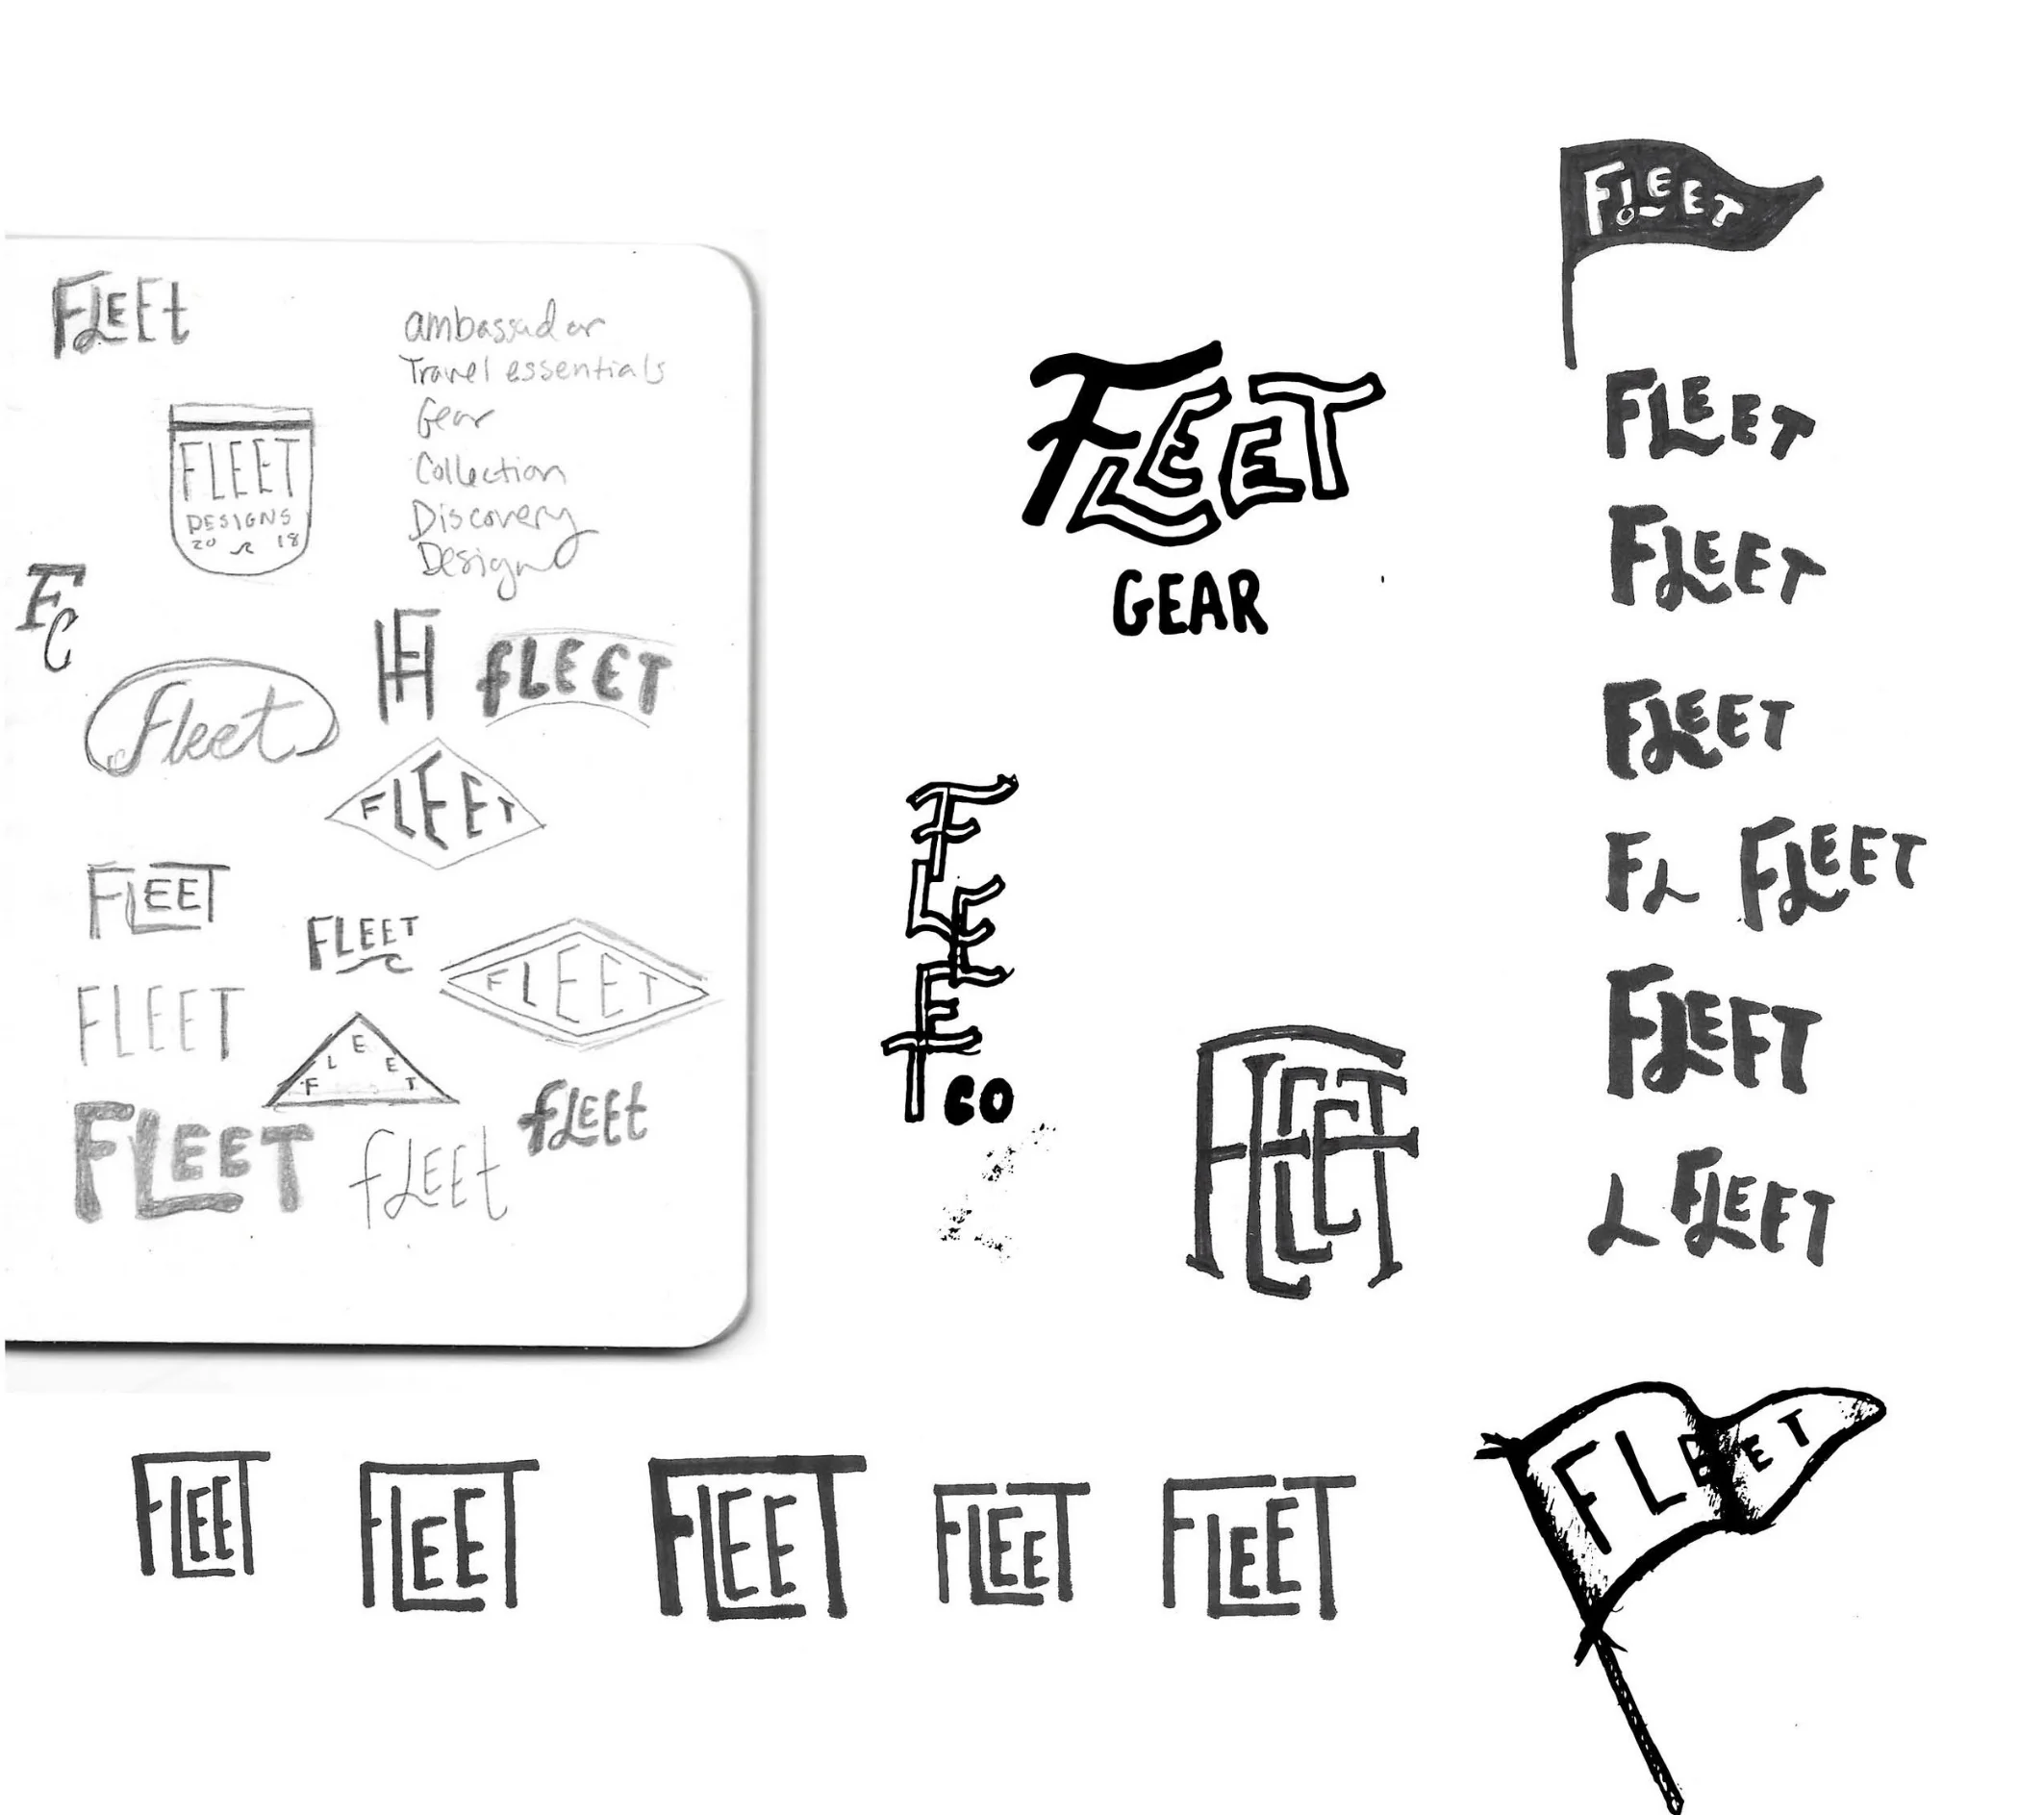 FLEEt
ambassador
Travel essentials
Gear
Collection
Discovery
Design
FLEET
DESIGNS
20 18
FC
fLEET
Fleet
FLEET
FLEET
FLEET
FLEET
FLEET
FLEET
fLEEt
FLEET
fLEEt
FLEET
GEAR
FLEET
CO
FLEET
FLEET
FLEET
FLEET
FLEET
FL FLEET
FLEET
L FLEET
FLEET
FLEET
FLEET
FLEET
FLEET
FLEET